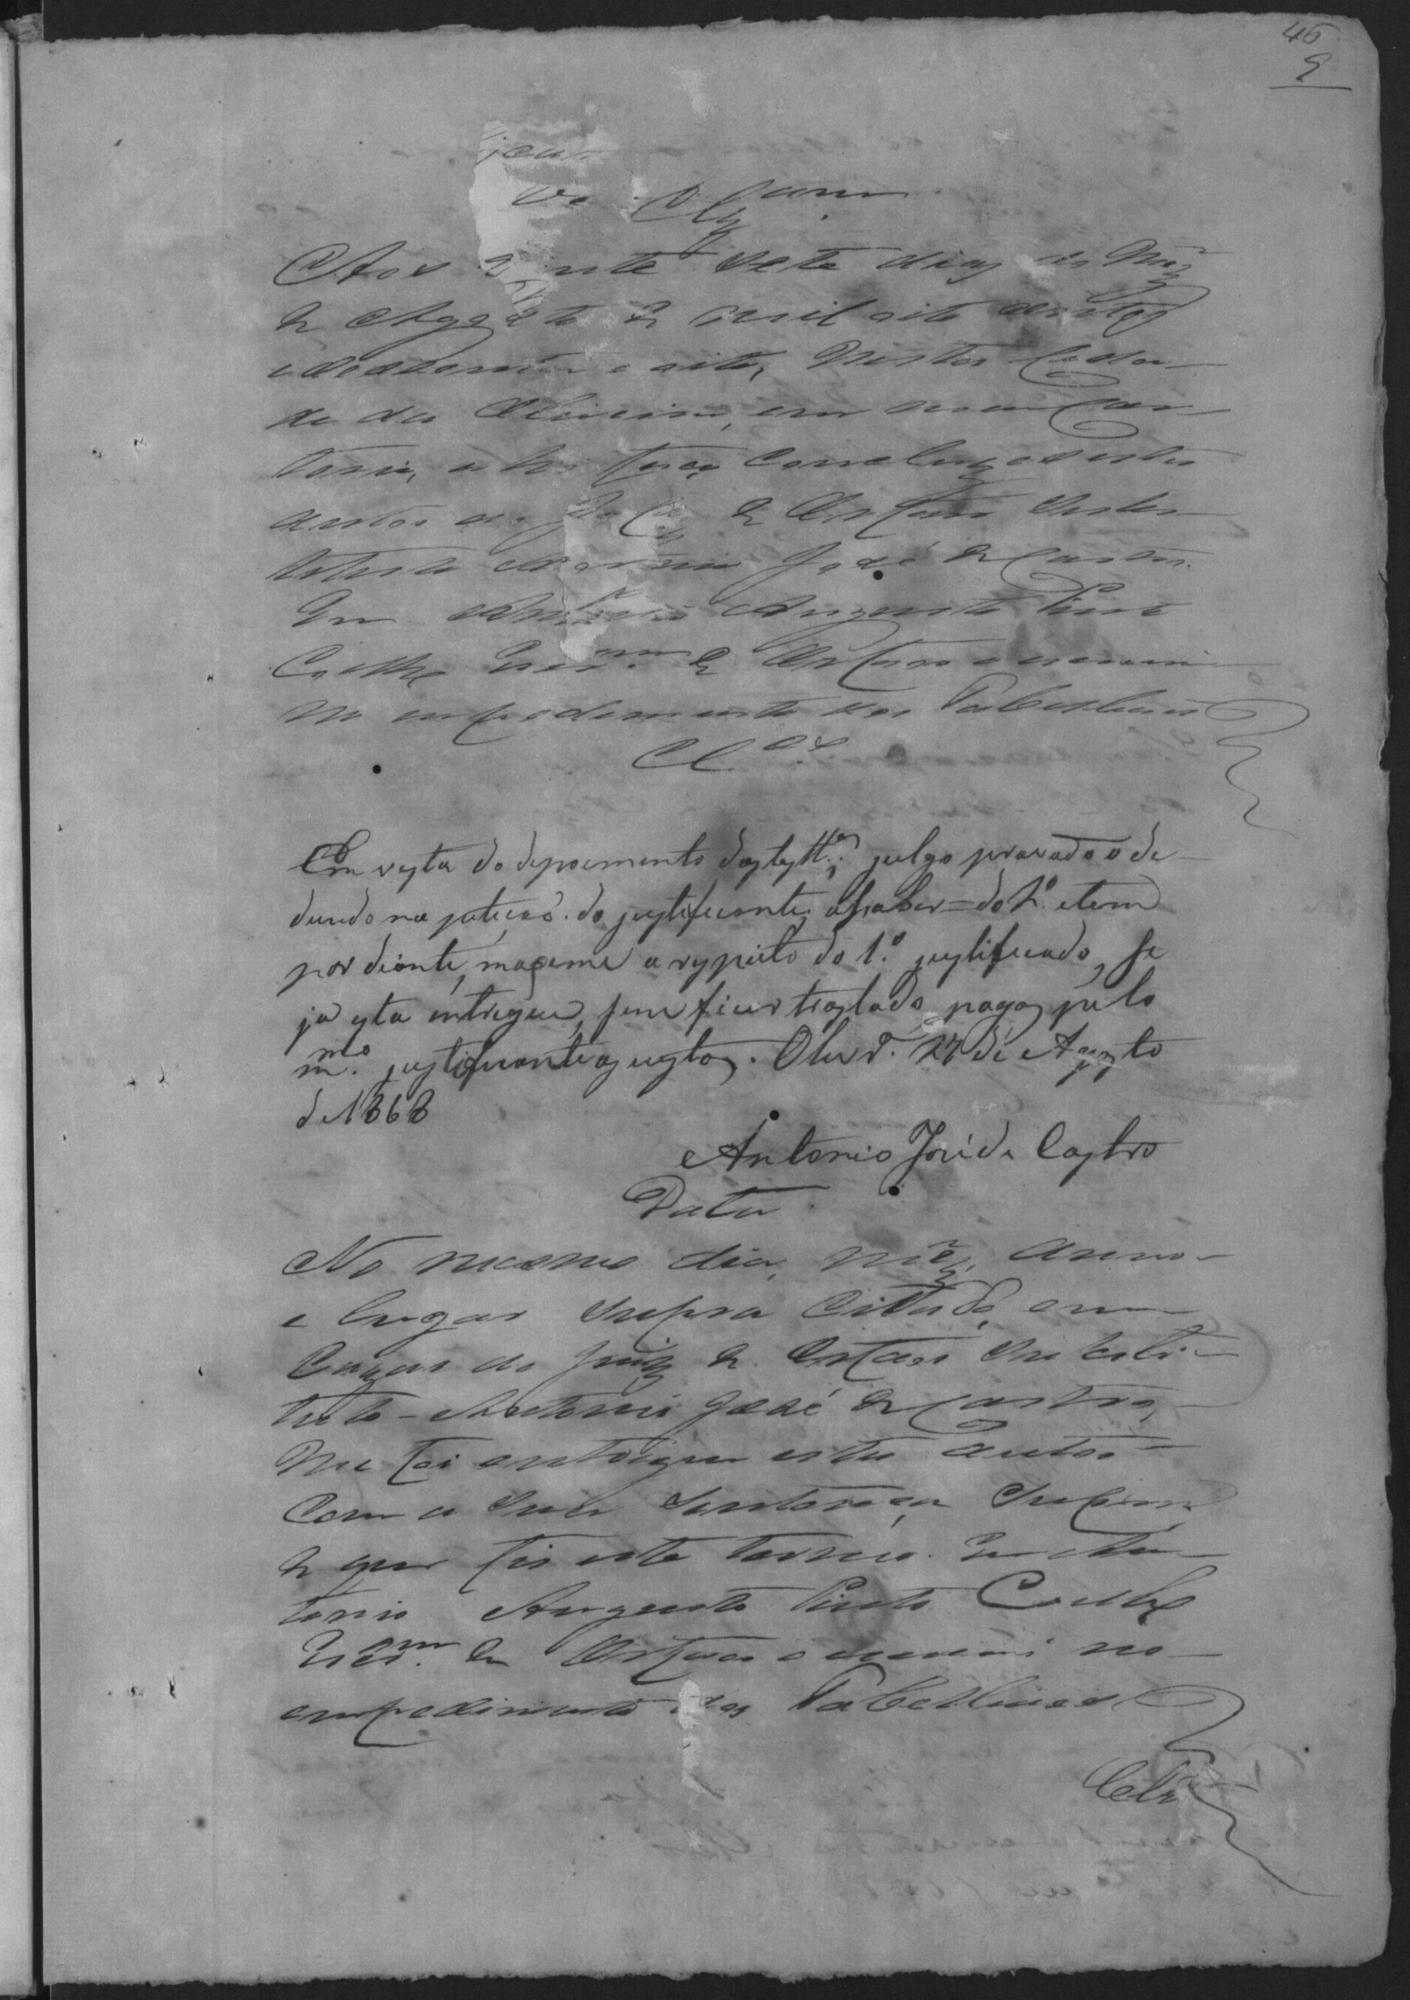 46
9
Aos vinte sete dias do Mez
de Agosto de mil oito centos
e sessenta e oito, nesta Cida-
de da Oliveira, em meu car-
torio, a hi faço conclusos estes
autos ao Juiz de Orfaons subs-
tituto Antonio José de Castro.
Eu Antonio Augusto Pinto
Coelho Escr.am de Orfaons o escrevi
no empedimento dos Tabelliaens
Cl.os
Em vysta do depoemento das test.as julgo provado o de
dusido na peteçaõ do justificante, a saber = do 2.º etem
por diante, maxeme a respeito do 1.º justificado, Se
ja esta entregue, sem ficar traslado, pagas pelo
m.mo justificante as custas. Oliv.ra 27 de Agosto
de 1868
Antonio José de Castro
Data
No mesmo dia, mez, anno
e lugar supra citado, em
Cazas do Juiz de Orfaons substi-
tuto - Antonio José de Castro,
me foi entregue estes autos
com a sua sentença supra,
de que fis este termo. Eu An-
tonio Augusto Pinto Coelho
Escr.am de Orfaons o escrevi no
empedimento dos Tabelliaens